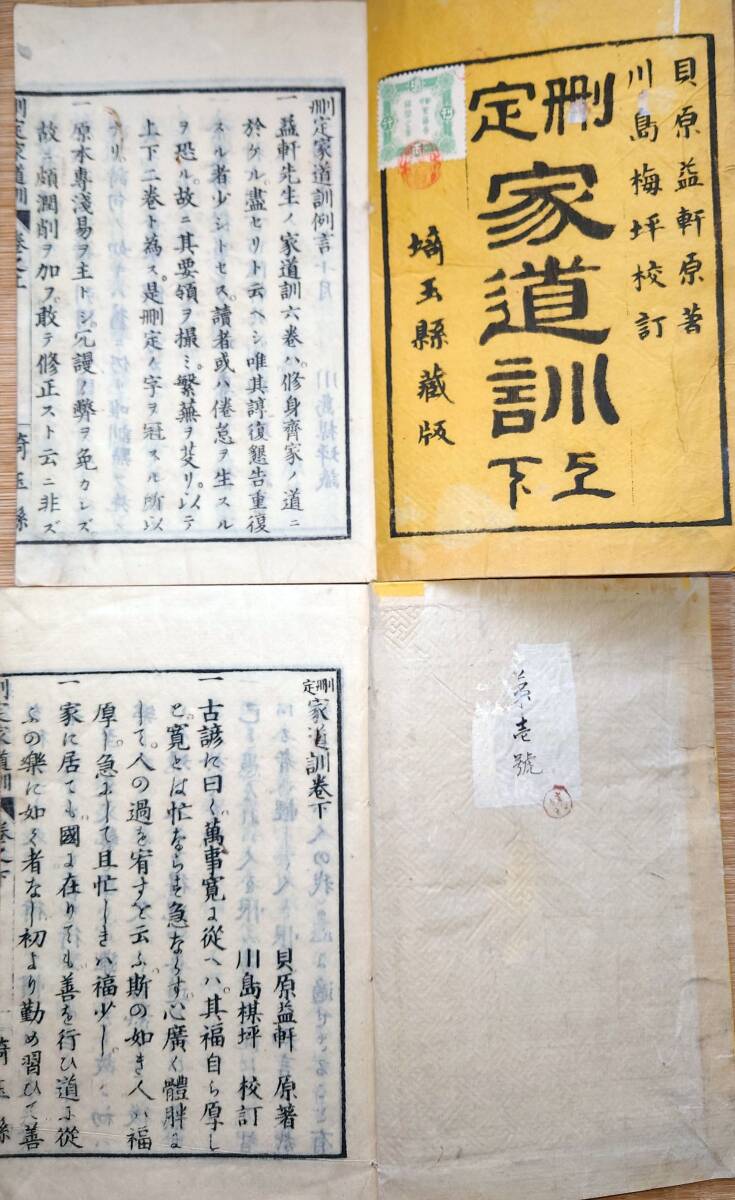 貝原益軒原著
川島梅坪校訂
刪定
家道訓
上下
埼玉縣藏版
刪定家道訓例言十月
一益軒先生ノ家道訓六卷ハ。修身齊家ノ道ニ
於ケル。盡セリト云ヘシ唯其諄復懇告重復
スル者少シトセス。讀者或ハ倦怠ヲ生スル
ヲ恐ル。故ニ其要領ヲ撮ミ。繁蕪ヲ芟リ。以テ
上下二卷ト為ス。是刪定ノ字ヲ冠スル所以
ナリ
一原本專淺易ヲ主トシ。冗謾ノ弊ヲ免カレズ
故ニ頗潤削ヲ加フ。敢テ修正スト云ニ非ズ
刪定家道訓
卷之上
埼玉縣
第壱號
刪定家道訓卷下
貝原益軒 原著
川島楳坪 校訂
一古諺に曰く萬事寛に從へハ。其福自ら厚し
と。寛とは忙ならも急ならず。心廣く體胖に
して。人の過を宥すを云ふ。斯の如き人ハ福
厚し。急にして且忙しきハ福少し。
一家に居ても。國に在りても。善を行ひ道に從
ふの樂に如く者なし初より勤め習ひて善
刪定家道訓
卷之下
埼玉縣